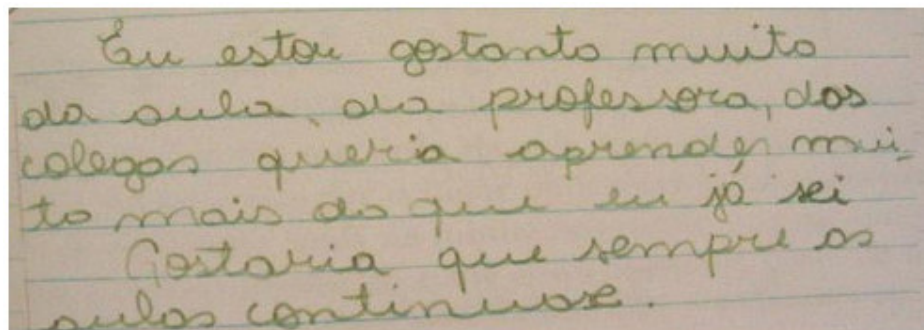 Eu estou gostanto muito
da aula, da professora, dos
colegas queria aprender mui-
to mais do que eu já sei
Gostaria que sempre as
aulas continuase.